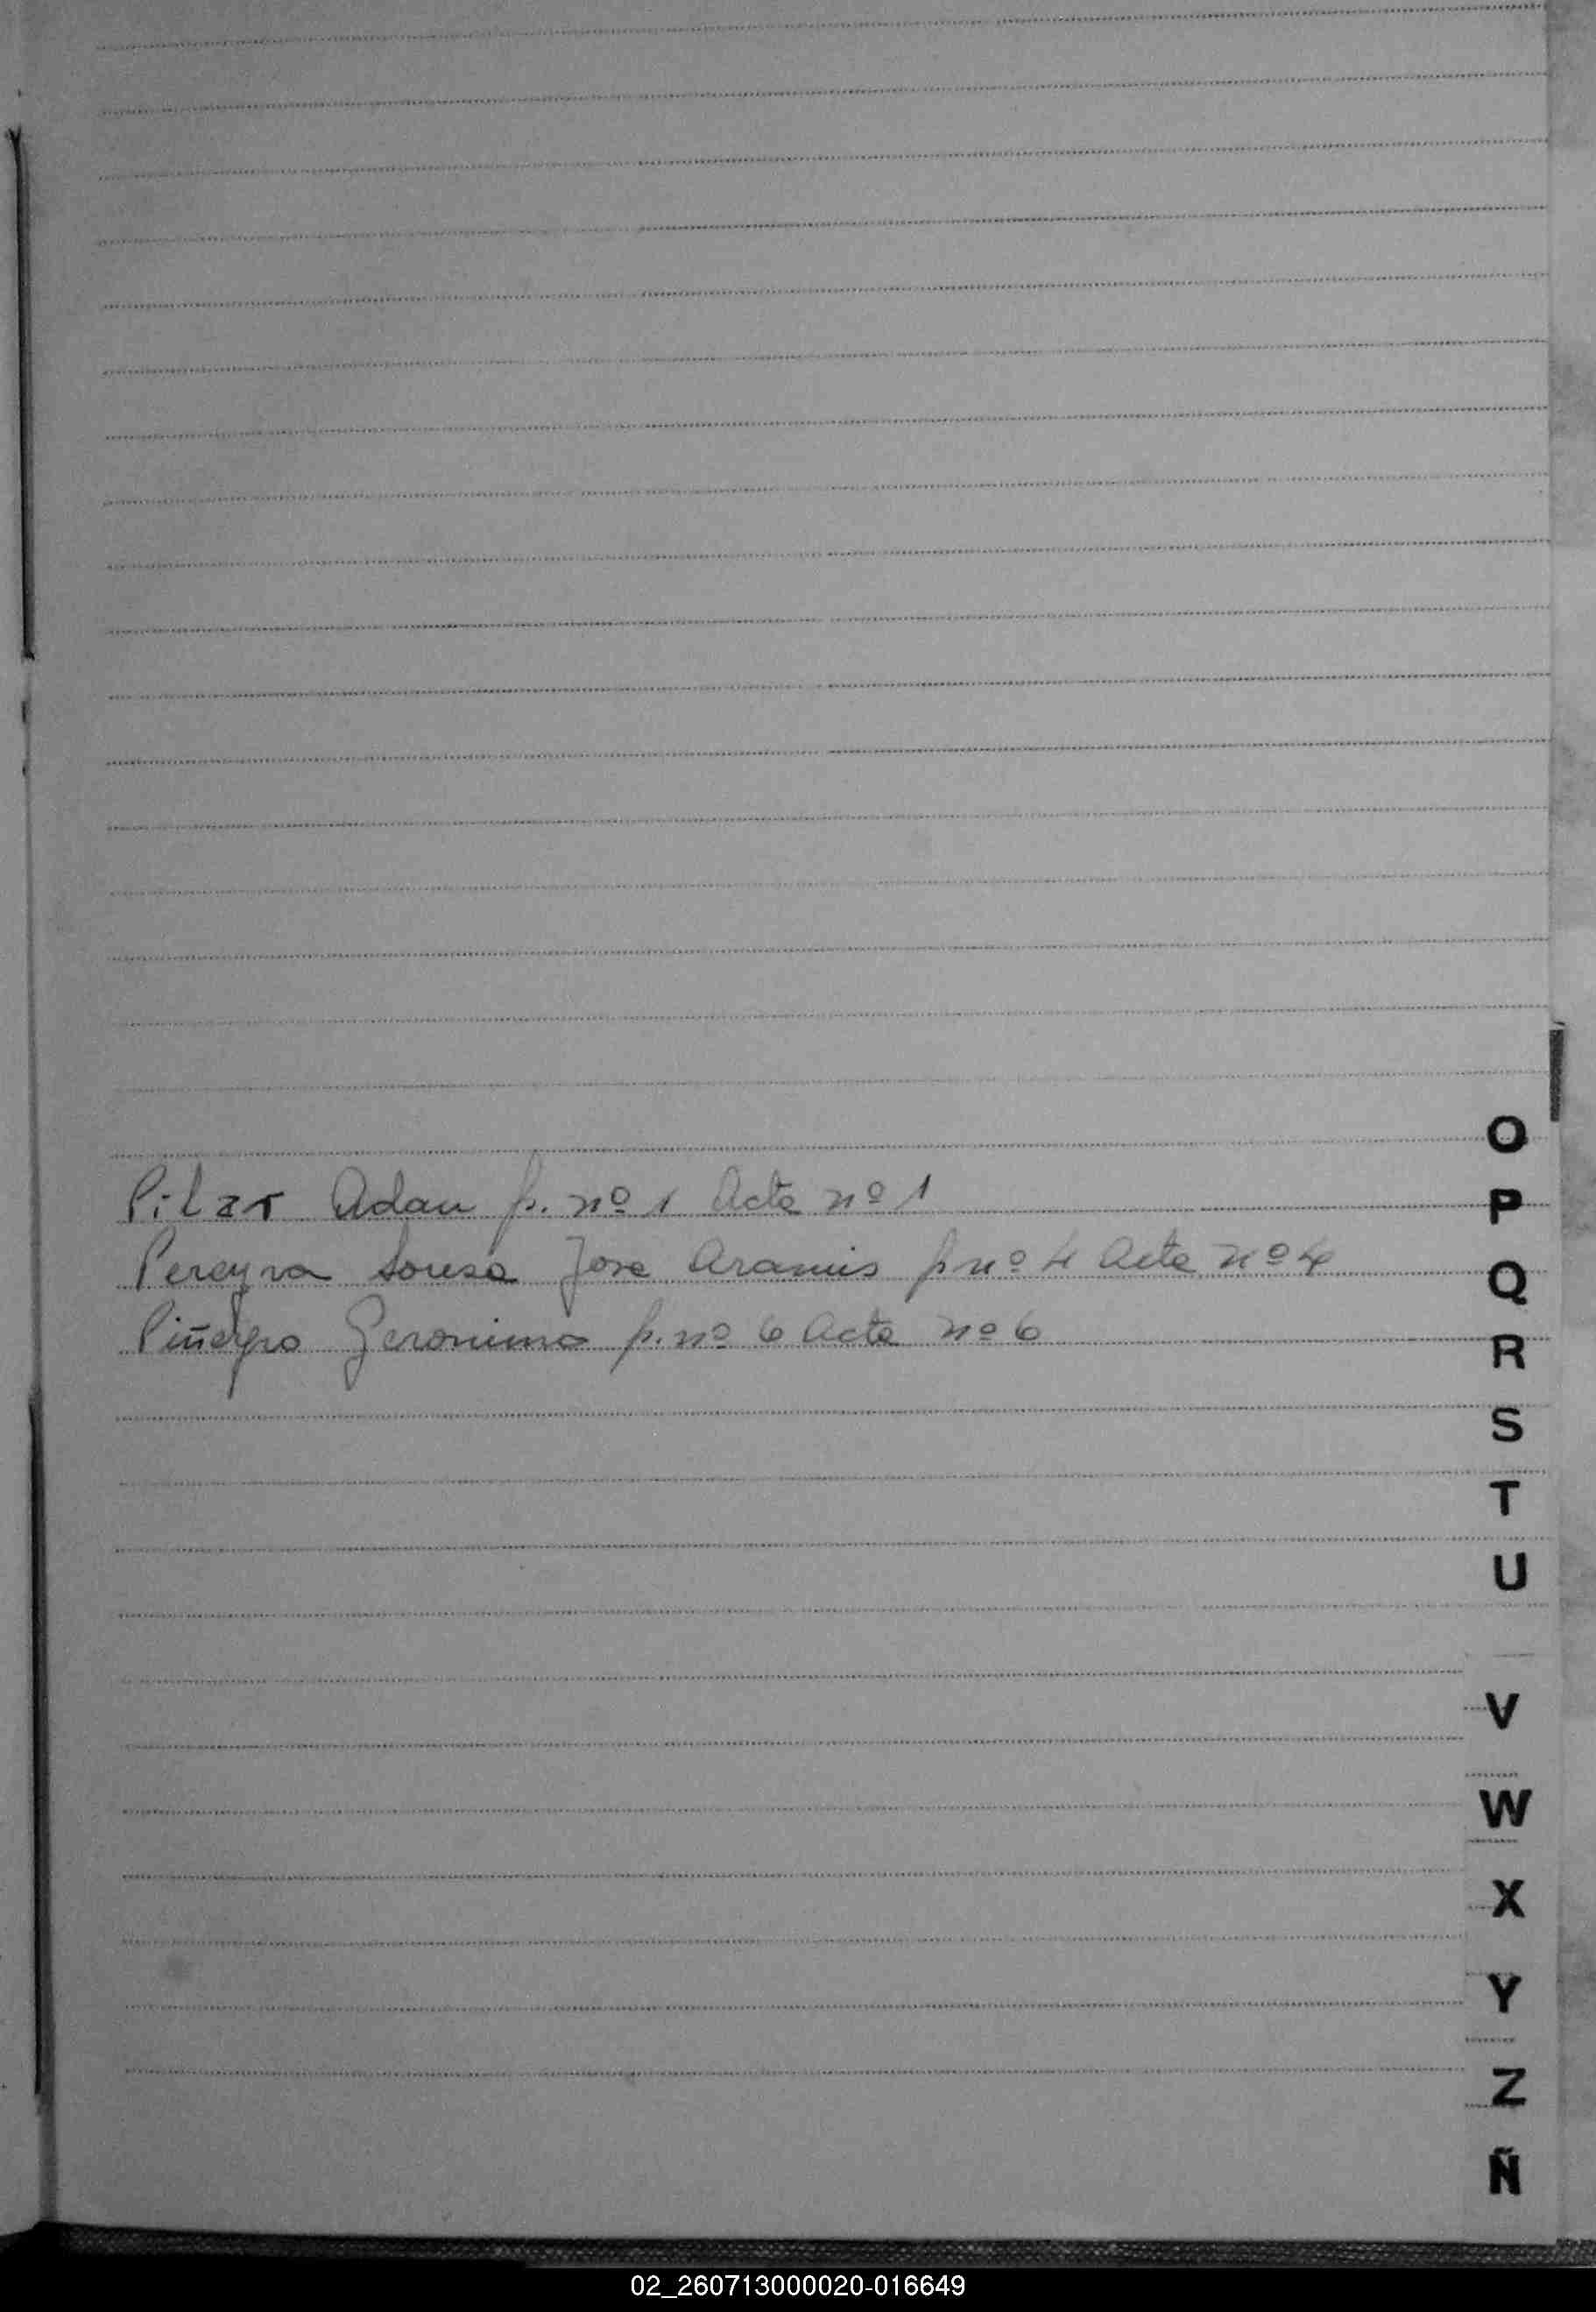 O
Pilar Adan p. nº 1 Acta nº 1
P
Pereyra Sousa Jose Aramis p nº 4 Acta nº 4
Q
Piñeyro Geronimo p. nº 6 Acta nº 6
R
S
T
U
V
W
X
Y
Z
Ñ
02_260713000020-016649